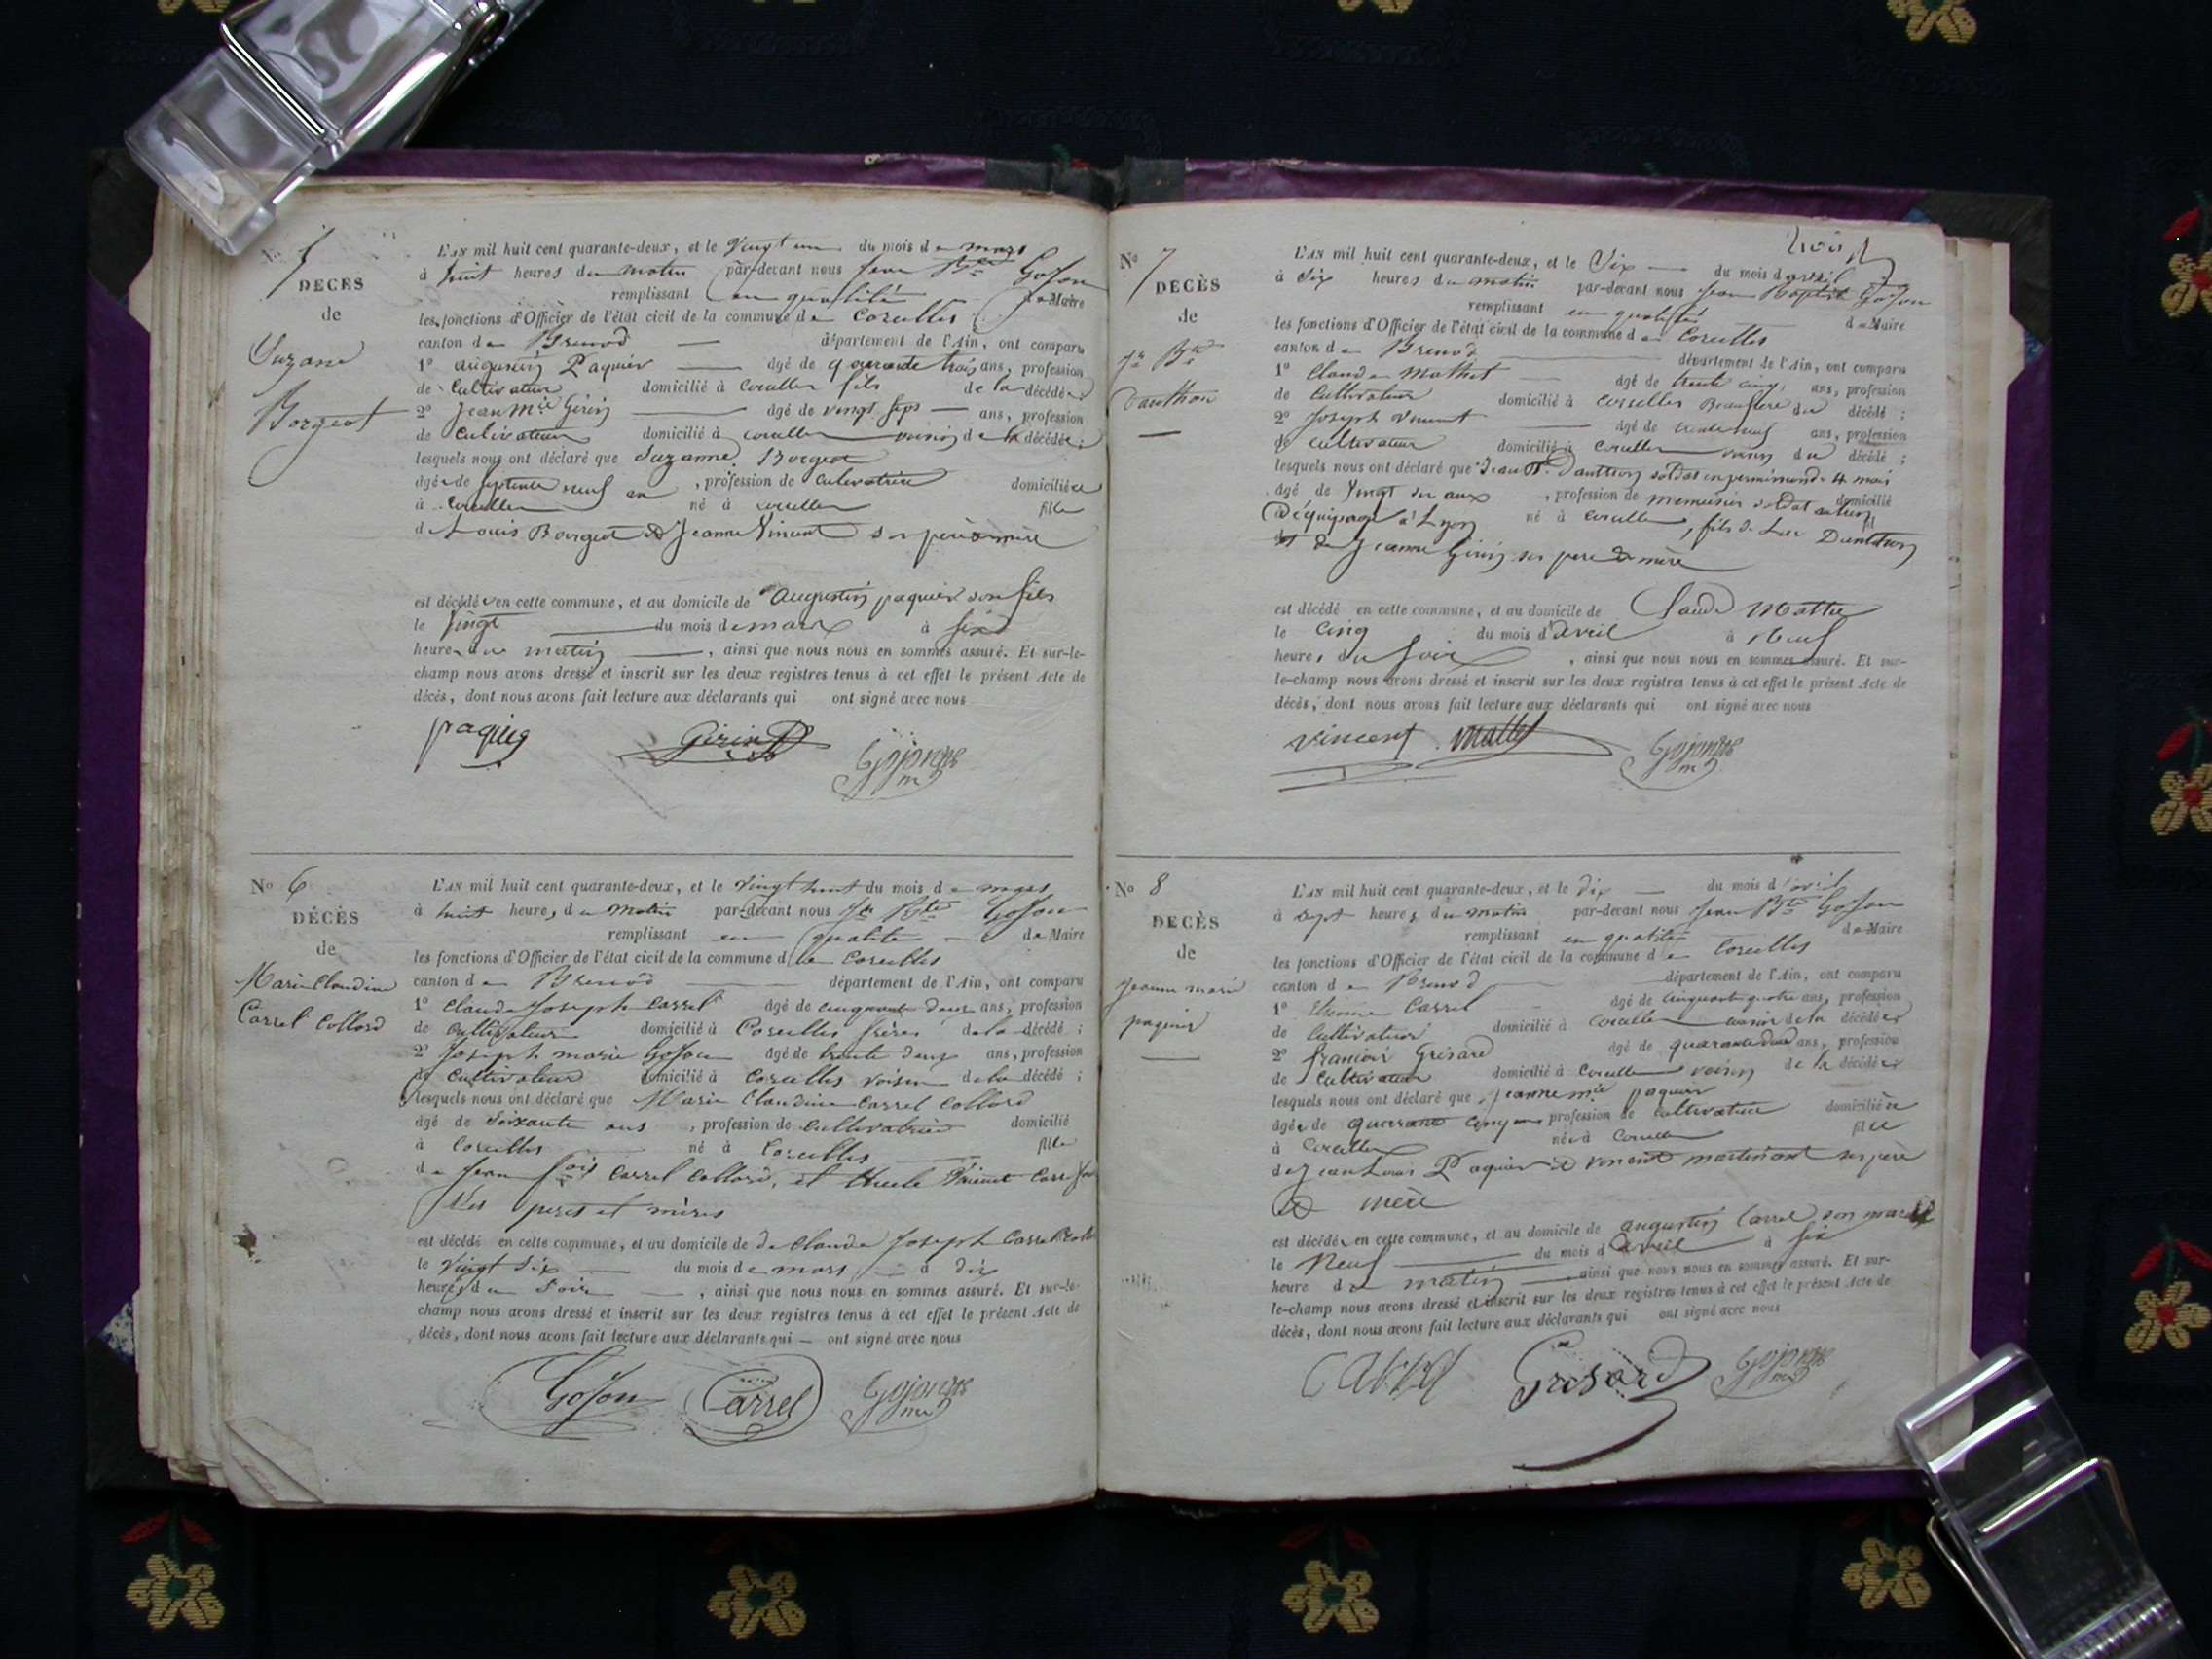 No 5
DÉCÈS
de
Suzane
Borgeot
L'AN mil huit cent quarante-deux, et le Vingt un du mois de mars
à huit heures du matin par-devant nous Jean Bte Gojon
remplissant en qualité de Maire
les fonctions d'Officier de l'état civil de la commune de Corcelles
canton de Brenod département de l'Ain, ont comparu
1o augustin Paquier âgé de quarante trois ans, profession
de Cultivateur domicilié à Corcelles fils de la décédée
2o Jean Mie Girin âgé de vingt sept ans, profession
de Cultivateur domicilié à corcelles voisin de la décédée ;
lesquels nous ont déclaré que Suzanne Borgeot
âgée de septente neuf an , profession de Cultivatrice domiciliée
à Corcelles né à corcelles fille
de Louis Borgeot et Jeanne Vincent ses père et mère
est décédée en cette commune, et au domicile de Augustin paquier son fils
le Vingt du mois de mars à six
heure du matin , ainsi que nous nous en sommes assuré. Et sur-le-
champ nous avons dressé et inscrit sur les deux registres tenus à cet effet le présent Acte de
décès, dont nous avons fait lecture aux déclarants qui ont signé avec nous
paquier Girin Gojon
No 6
DÉCÈS
de
Marie Claudine
Carrel Collord
L'AN mil huit cent quarante-deux, et le Vingt huit du mois de mars
à huit heures du Matin par-devant nous Jn Bte Gojon
remplissant en qualité de Maire
les fonctions d'Officier de l'état civil de la commune de Corcelles
canton de Brenod département de l'Ain, ont comparu
1o Claude Joseph Carrel âgé de cinquante deux ans, profession
de Cultivateur domicilié à Corcelles frère de la décédé ;
2o Joseph marie Gojon âgé de trente deux ans, profession
de Cultivateur domicilié à Corcelles voisin de la décédé ;
lesquels nous ont déclaré que Marie Claudine Carrel Collord
âgé de Soixante ans , profession de Cultivatrice domicilié
à Corcelles né à Corcelles fille
de Jean fois Carrel Collord, et Vincent
Ses peres et mères
est décédé en cette commune, et au domicile de de Claude Joseph Carrel
le Vingt Six du mois de mars à dix
heures du Soir , ainsi que nous nous en sommes assuré. Et sur-le-
champ nous avons dressé et inscrit sur les deux registres tenus à cet effet le présent Acte de
décès, dont nous avons fait lecture aux déclarants qui — ont signé avec nous
Gojon Carrel Gojon
No 7
DÉCÈS
de
Jn Bte
Danthon
trois
L'AN mil huit cent quarante-deux, et le Six du mois d'avril
à Six heures du matin par-devant nous Jean Baptiste Gojon
remplissant en qualité de Maire
les fonctions d'Officier de l'état civil de la commune de Corcelles
canton de Brenod département de l'Ain, ont comparu
1o Claude Mathet âgé de trente cinq ans, profession
de Cultivateur domicilié à Corcelles Beau frere du décédé ;
2o Joseph Vincent âgé de trente neuf ans, profession
de Cultivateur domicilié à Corcelles voisin du décédé ;
lesquels nous ont déclaré que Jean Bte Danthon soldat en permission de 4 mois
âgé de Vingt six ans , profession de menuisier soldat domicilié
D'équipage à Lyon né à corcelles , fils de Luc Danthon
et de Jeanne Girin ses père et mère
est décédé en cette commune, et au domicile de Claude Mathe
le Cinq du mois d'avril à Neuf
heures du Soir , ainsi que nous nous en sommes assuré. Et sur-
le-champ nous avons dressé et inscrit sur les deux registres tenus à cet effet le présent Acte de
décès, dont nous avons fait lecture aux déclarants qui ont signé avec nous
vincent Mathet Gojon
No 8
DÉCÈS
de
Jeanne marie
paquier
L'AN mil huit cent quarante-deux, et le dix du mois d'avril
à sept heures du matin par-devant nous Jean Bte Gojon
remplissant en qualité de Maire
les fonctions d'Officier de l'état civil de la commune de Corcelles
canton de Brenod département de l'Ain, ont comparu
1o Etienne Carrel âgé de cinquante quatre ans, profession
de Cultivateur domicilié à corcelles voisin de la décédée
2o francois Grisard âgé de quarante deux ans, profession
de Cultivateur domicilié à Corcelles voisin de la décédée
lesquels nous ont déclaré que jeanne mie paquier
âgée de quarante cinq ans profession de cultivatrice domiciliée
à Corcelles née à Corcelles fille
de Jean Louis Paquier et vincent ses père
et mère
est décédée en cette commune, et au domicile de augustin Carrel son mari
le Neuf du mois d'avril à six
heure du matin ainsi que nous nous en sommes assuré. Et sur-
le-champ nous avons dressé et inscrit sur les deux registres tenus à cet effet le présent Acte de
décès, dont nous avons fait lecture aux déclarants qui ont signé avec nous
Carrel Grisard Gojon